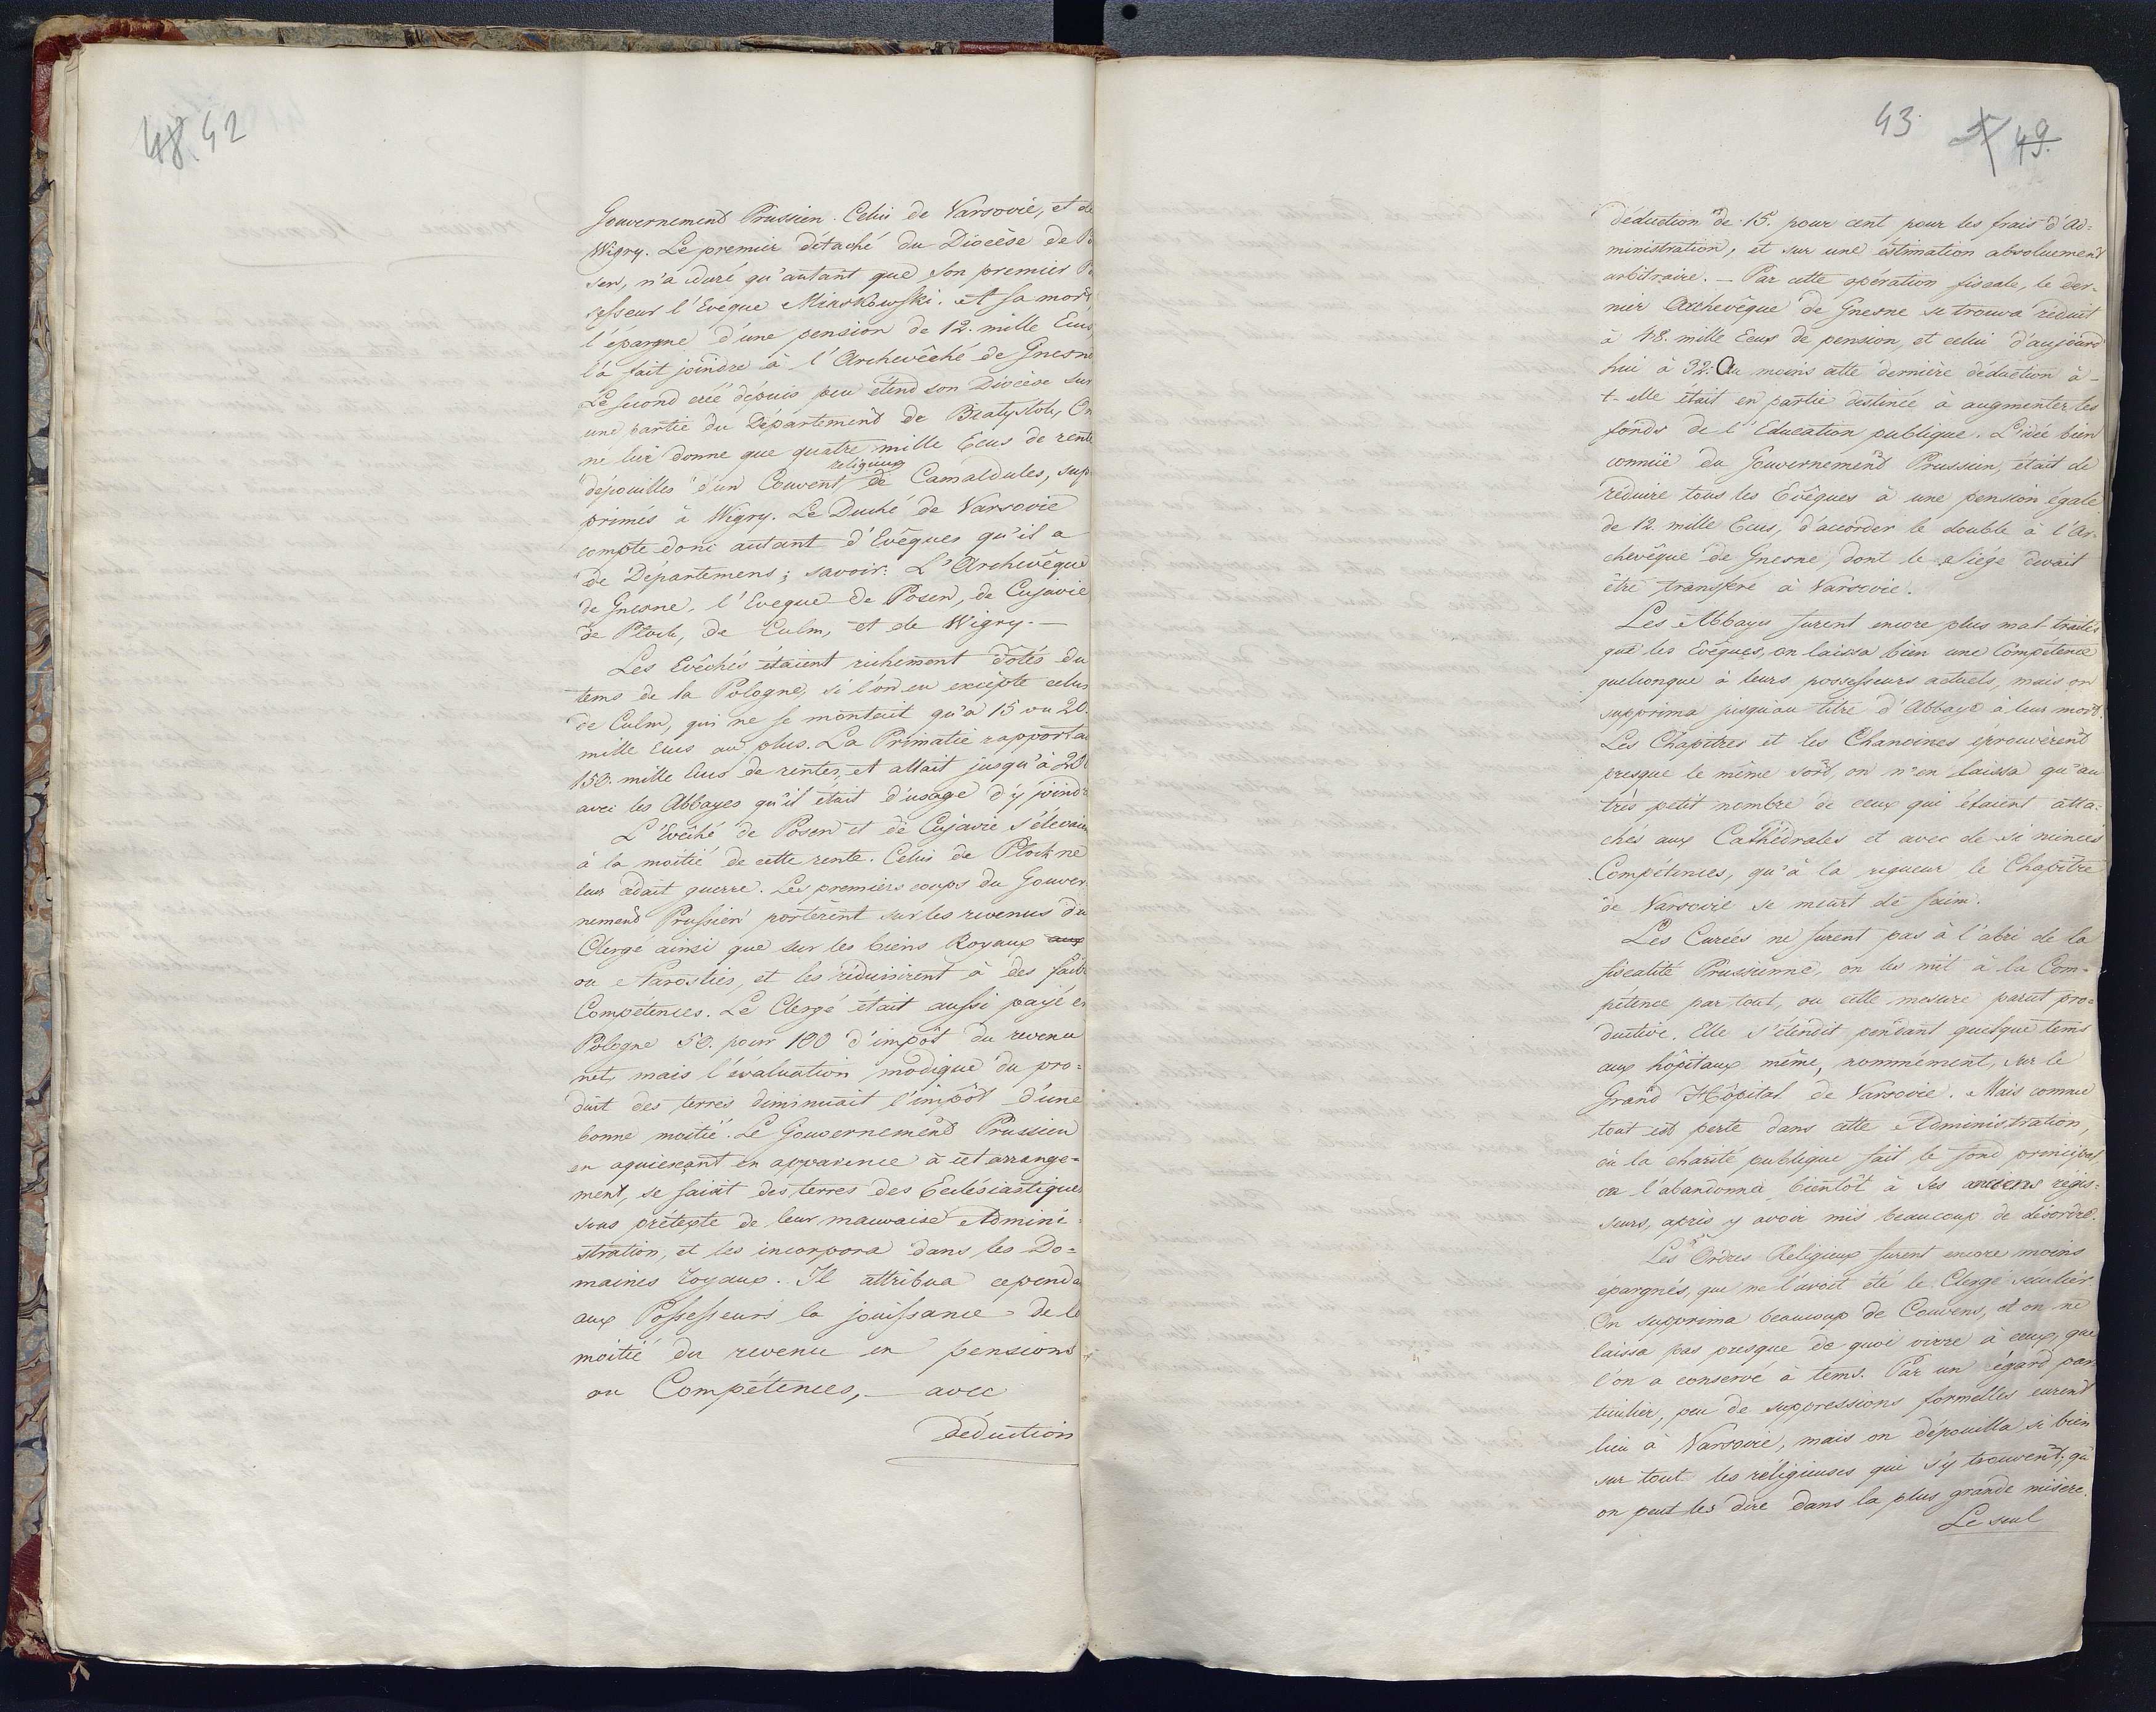 48. 42
Gouvernement Prussien. Celui de Varsovie, et de
Wigry. Le premier détaché du Diocèse de Po
sen, n'a duré qu'autant que son premier Po
sesseur l'Eveque Miaskowski. A sa mort
l'épargne d'une pension de 12. mille Ecus,
l'a fait joindre à l'Archevêché de Gnesne
Le second créé dépuis peu étend son Diocèse sur
une partie du Département de Bialystok, On
ne lui donne que quatre mille Ecus de rente
religieux
dépouilles d'un Couvent de Camaldules, sup
primés à Wigry. Le Duché de Varsovie
compte donc autant d'Evêques qu'il a
de Départemens; savoir: L'Archevêque
de Gnesne, l'Eveque de Posen, de Cujavie
de Plock, de Culm, et de Wigry. —
Les Evêchés étaient richement dotés du
tems de la Pologne, si l'on en excepte celui
de Culm, qui ne se montait qu'à 15 ou 20.
mille écus au plus. La Primatie rapportai
150. mille écus de rentes, et allait jusqu'à 200
avec les Abbayes qu'il était d'usage d'y joindre
L'Evêché de Posen et de Cujavie s'élevaien
à la moitié de cette rente. Celui de Plock ne
leur cédait guerre. Les premiers coups du Gouver
nement Prussien portèrent sur les revenus du
Clergé ainsi que sur les biens Royaux aux
ou Starosties, et les réduisirent à des faibl
Compétences. Le Clergé était aussi payé en
Pologne 50. pour 100 d'impôt du revenu
net, mais l'évaluation modique du pro=
duit des terres diminuait l'impôt d'une
bonne moitié. Le Gouvernement Prussien
en aquiesçant en apparence à cet arrange=
ment, se saisit des terres des Ecclésiastiques
sous prétexte de leur mauvaise Admini=
stration, et les incorpora dans les Do=
maines royaux. Il attribua cependa
aux Possesseurs la jouissance de la
moitié du revenu en pensions
ou Compétences, — avec
déduction
43. 49.
déduction de 15. pour cent pour les frais d'Ad=
ministration, et sur une éstimation absoluement
arbitraire. — Par cette opération fiscale, le der-
nier Archevêque de Gnesne se trouva réduit
à 48. mille Ecus de pension, et celui d'aujourd
hui à 32. Au moins cette dernière déduction a-
t-elle était en partie destinée à augmenter les
fonds de l'Education publique. L'idée bien
connüe du Gouvernement Prussien, était de
réduire tous les Evêques à une pension égale
de 12. mille Ecus, d'accorder le double à l'Ar-
chevêque de Gnesne, dont le Siége devait
être transferé à Varsovie.
Les Abbayes furent encore plus mal-traités
que les Evêques, on laissa bien une Compétence
quelconque à leurs possesseurs actuels, mais on
supprima jusqu'au titre d'Abbaye à leur mort.
Les Chapitres et les Chanoines éprouvèrent
presque le même sort, on n'en laissa qu'au
très petit nombre de ceux qui étaient atta=
chés aux Cathédrales et avec de si minces
Compétences, qu'à la rigueur le Chapitre
de Varsovie se meurt de faim.
Les Curées ne furent pas à l'abri de la
fiscalité Prussienne, on les mit à la Com-
pétence par tout, ou cette mesure parut pro=
ductive. Elle s'étendit pendant quelque tems
aux hôpitaux même, nommément, sur le
Grand Hôpital de Varsovie. Mais comme
tout est perte dans cette Administration,
où la charité publique fait le fond principal,
on l'abandonna bientôt à ses anciens régis=
seurs, après y avoir mis beaucoup de désordre.
Les Ordres Religieux furent encore moins
épargnés, que ne l'avoit été le Clergé séculier.
On supprima beaucoup de Couvens, et on ne
laissa pas presque de quoi vivre à ceux, que
l'on a conservé à tems. Par un égard par-
ticulier, peu de suppressions formelles eurent
lieu à Varsovie, mais on dépouilla si bien
sur tout les réligieuses qui s'y trouvent, qu'
on peut les dire dans la plus grande misère.
Le seul